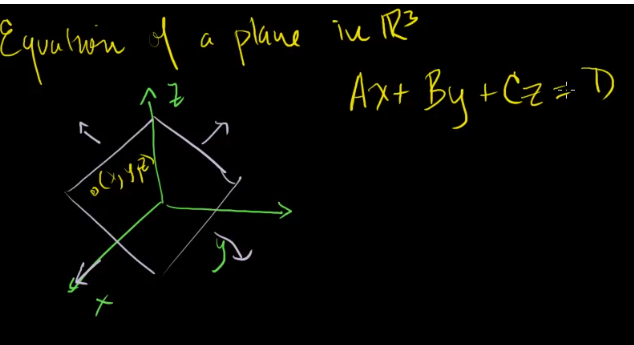 Equation of a plane in R³
Ax + By + Cz = D
z
(x, y, z)
y
x